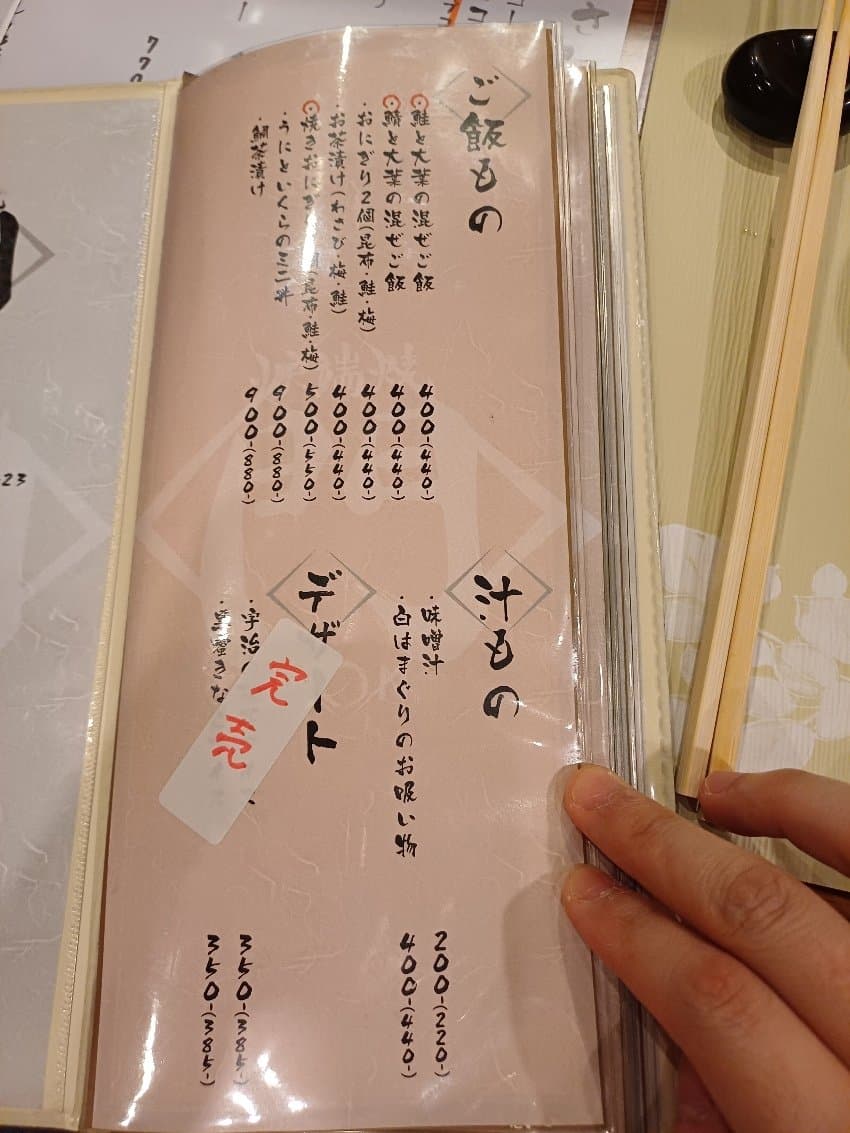 ご飯もの
・鮭と大葉の混ぜご飯 400-(440-)
・鯖と大葉の混ぜご飯 400-(440-)
・おにぎり2個(昆布・鮭・梅) 400-(440-)
・お茶漬け(わさび・梅・鮭) 400-(440-)
・焼きおにぎり 個(昆布・鮭・梅) 500-(550-)
・うにといくらのミニ丼 900-(880-)
・鯛茶漬け 900-(880-)
汁もの
・味噌汁 200-(220-)
・白はまぐりのお吸い物 400-(440-)
デザート
・宇治 350-(385-)
・黒蜜きな 350-(385-)
完売
770
23